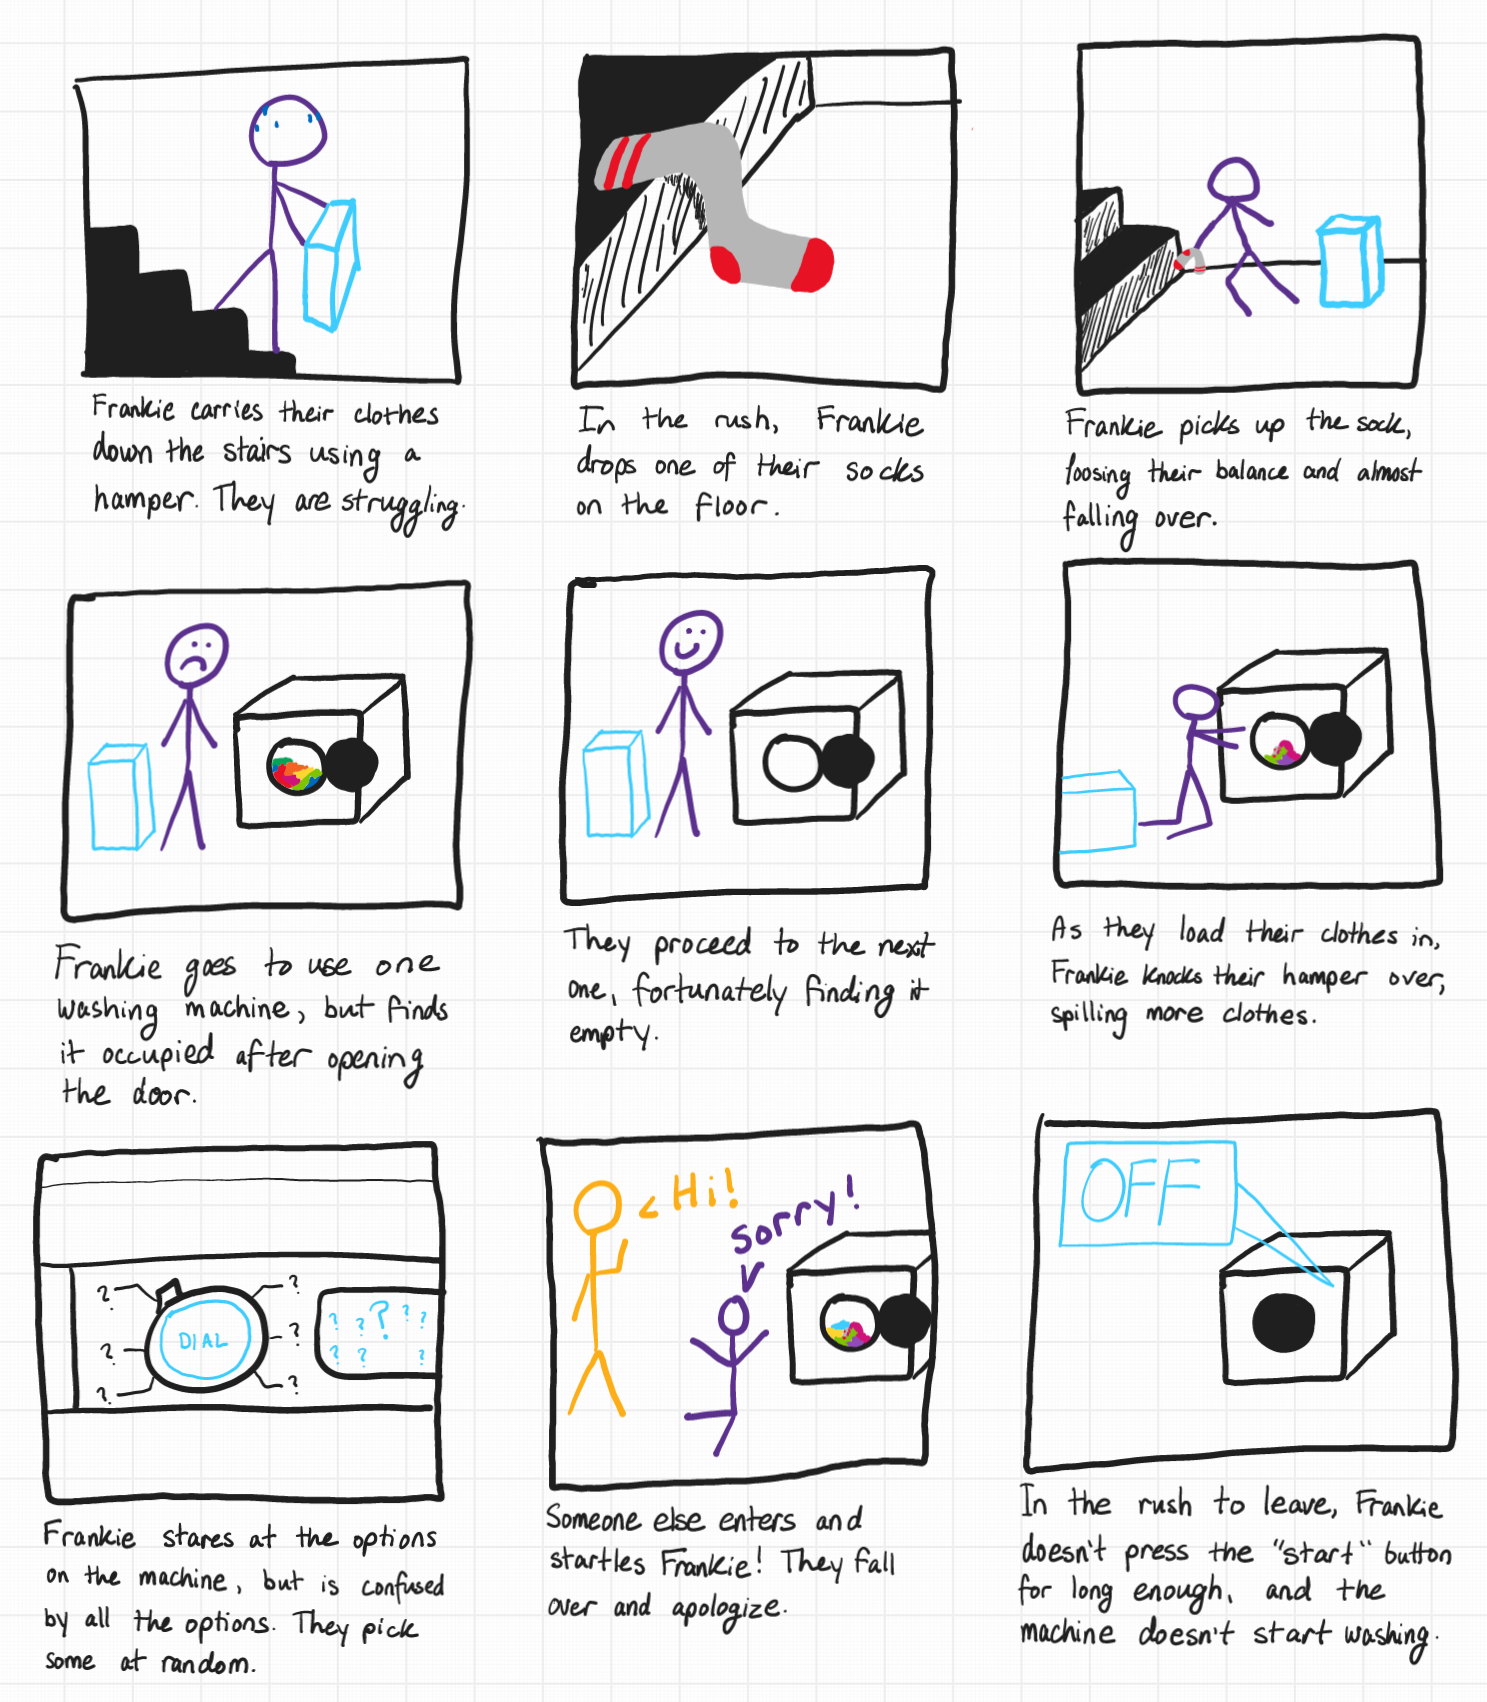 Frankie carries their clothes
down the stairs using a
hamper. They are struggling.
In the rush, Frankie
drops one of their socks
on the floor.
Frankie picks up the sock,
loosing their balance and almost
falling over.
Frankie goes to use one
washing machine, but finds
it occupied after opening
the door.
They proceed to the next
one, fortunately finding it
empty.
As they load their clothes in,
Frankie knocks their hamper over,
spilling more clothes.
? ?
? DIAL ?
? ?
? ? ? ? ?
? ? ?
Frankie stares at the options
on the machine, but is confused
by all the options. They pick
some at random.
< Hi!
Sorry!
Someone else enters and
startles Frankie! They fall
over and apologize.
OFF
In the rush to leave, Frankie
doesn't press the "start" button
for long enough, and the
machine doesn't start washing.